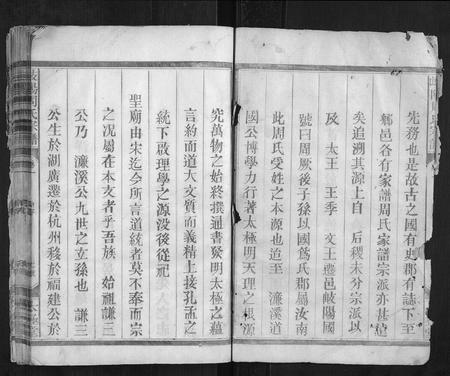 先務也是故古之國有史郡有誌下至
鄉邑各有家譜周氏家譜宗派亦甚遠
矣追溯其源上自 后稷末分宗派以
及 太王 王季 文王豐邑岐陽國
號曰周厥後子孫以國為氏郡屬汝南
此周氏受姓之本源也迨至 濂溪道
國公博學力行著太極明天理之根源
究萬物之始終撰通書發明太極之蘊
言約而道大文質而義精上接孔孟之
統下啟理學之源沒後從祀
聖廟由宋迄今所言道統者莫不奉而宗
之况屬在本支者乎吾族 始祖謙三
公乃 濂溪公九世之立孫也 謙三
公生於湖廣遷於杭州移於福建公於
周氏宗譜